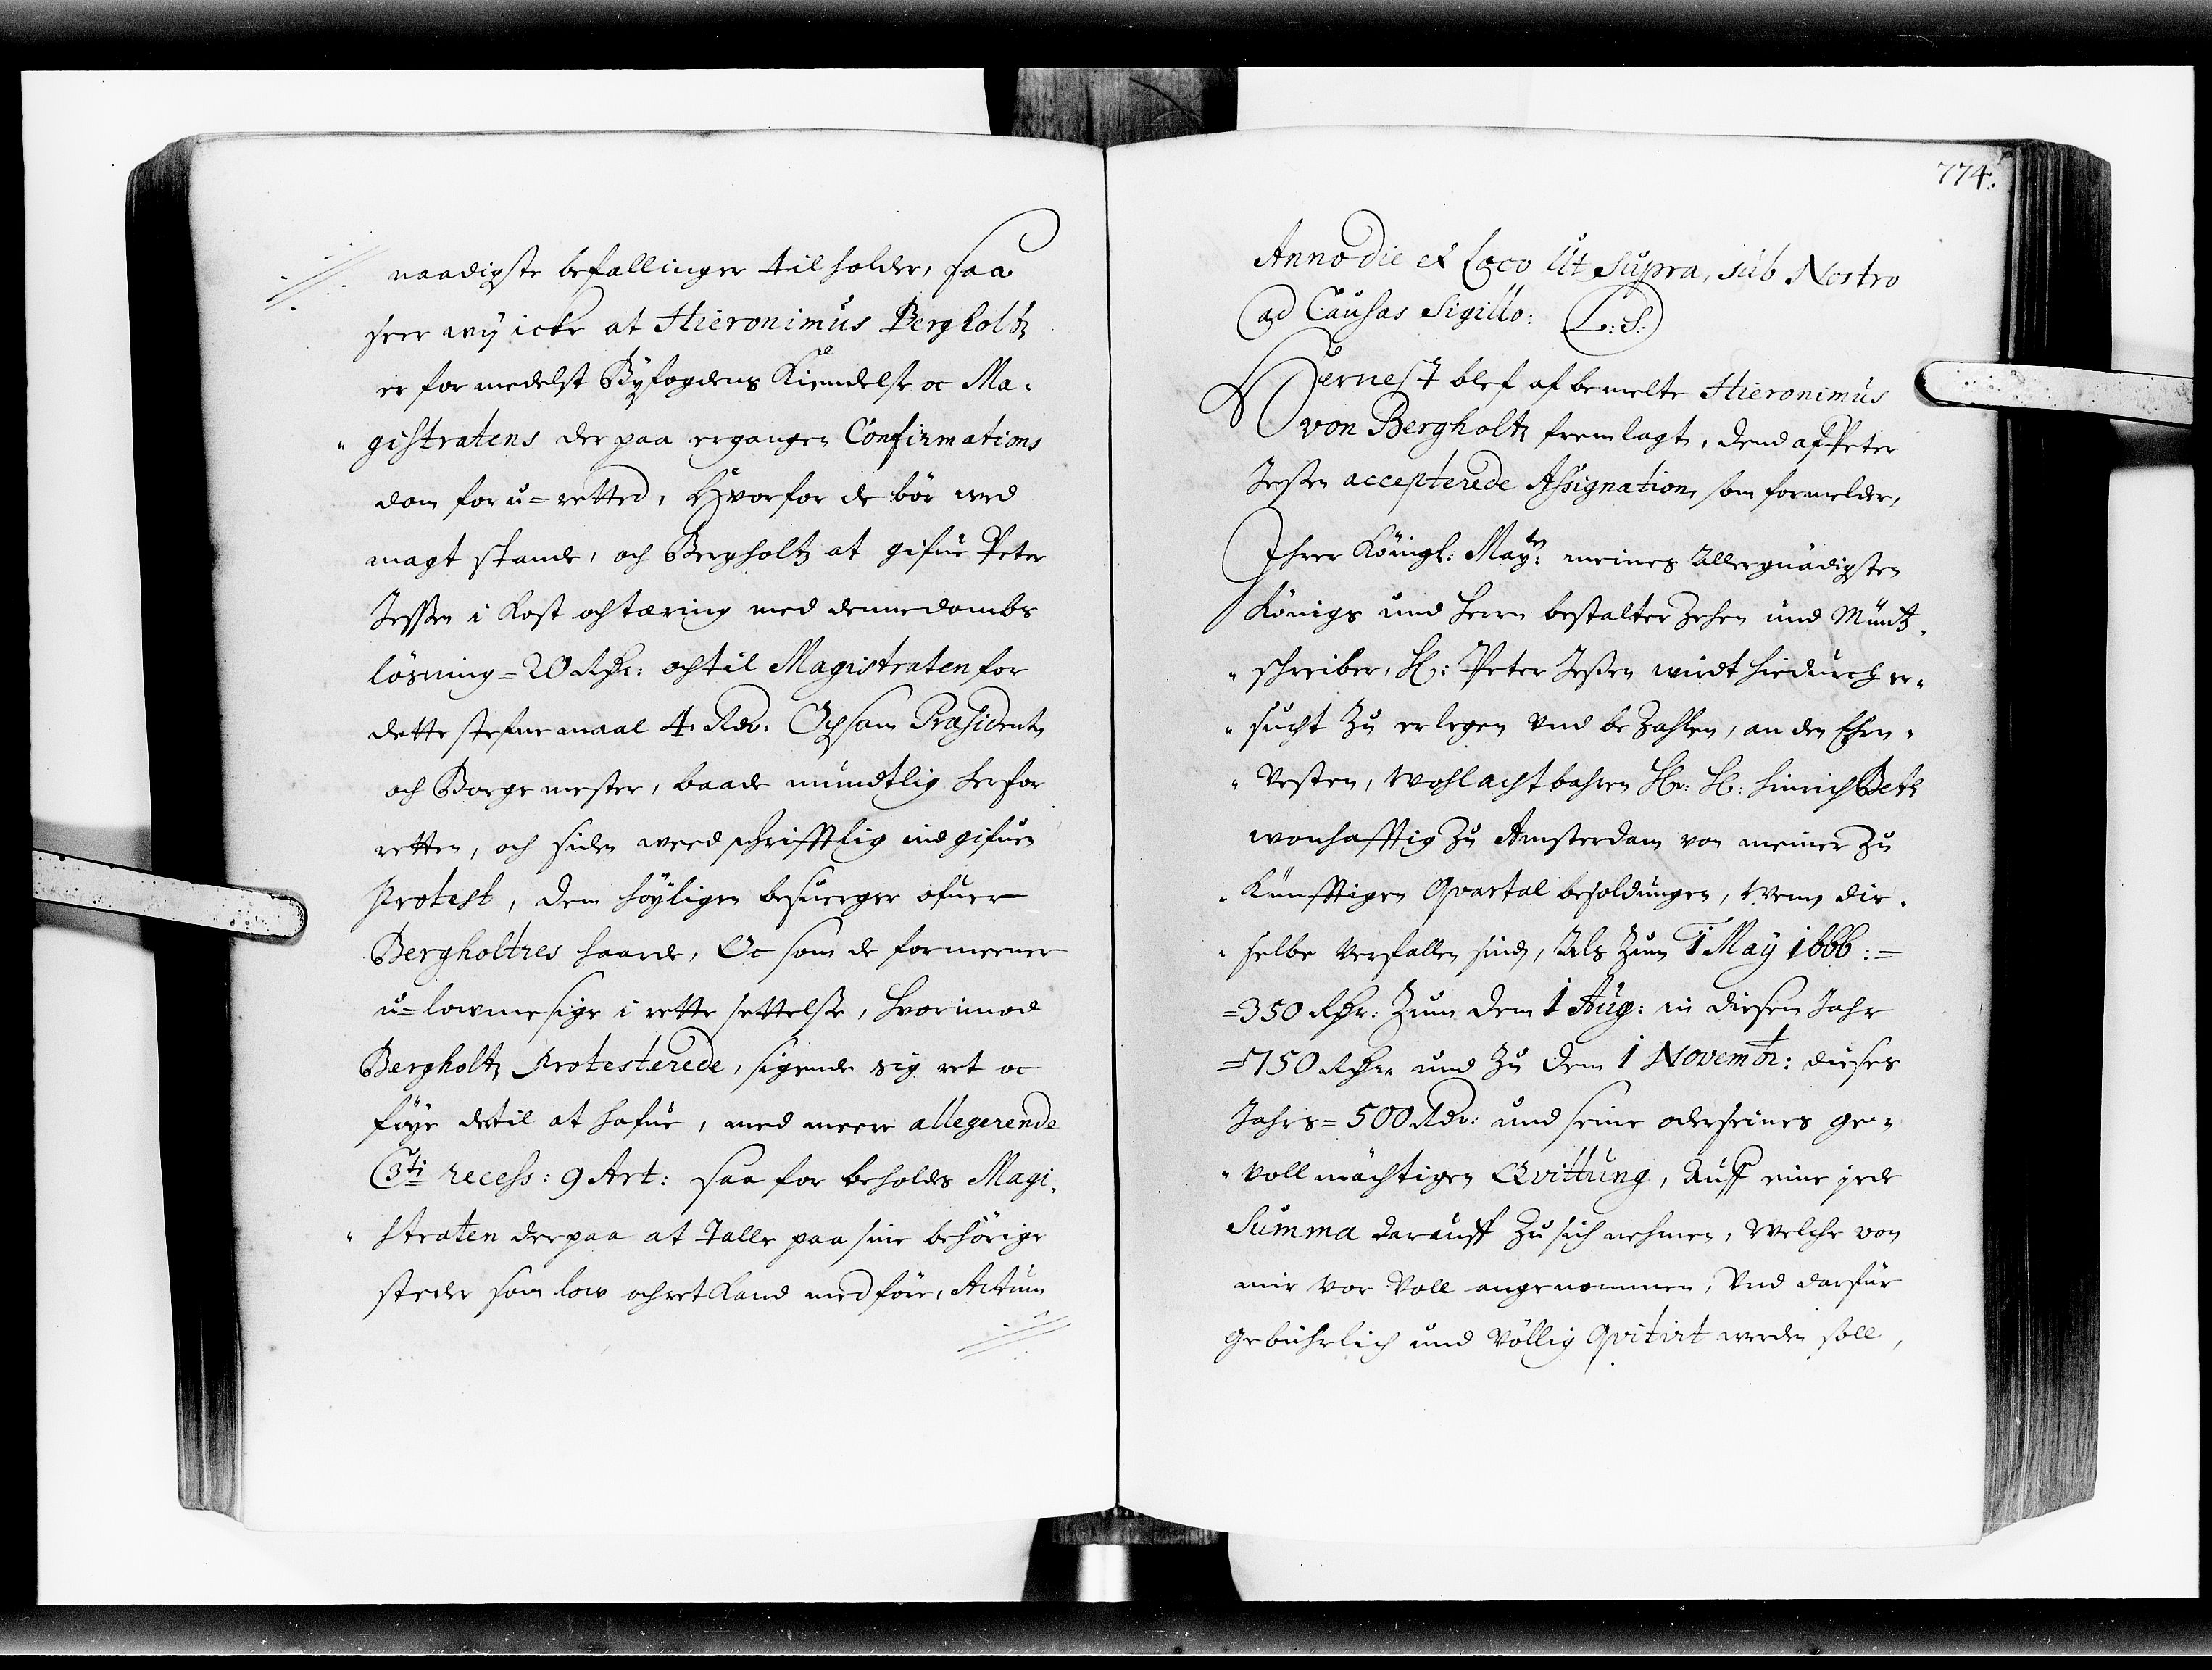 naadigste befallinger tilholder, saa
seer wij icke at Hieronimus Bergholtz
er formedelst Byfogdens Kiendelse oc Ma-
gistratens der paa ergangen Confirmations
dom for u-retted, Hvorfor de bör wed
magt stande, och Bergholtz at gifue Peter
Jessen i Kost och tæring med denne dombs
lösning = 20 Rdr: och til Magistraten for
dette stefnemaal 4 Rdr: Och som Præsidenten
och Borgemester, baade mundtlig her for
retten, och siden weed schrifftlig ind gifuen
Protest, dem höyligen besuerger ofuer
Bergholtzes haarde, Oc som de formeener
u-lowmesige i rette settelse, Hvorimod
Bergholtz Protesterede, sigende sig ret oc
föye dertil at hafue, med meere allegerende
3ti recess: 9 Art: saa for beholder Magi-
straten der paa at talle paa sine behörige
steder som low och ret kand medföre, Actum
774.
Anno die et Loco Ut supra, sub Nostro
ad Causas Sigillo: L: S:
Dernest blef af bemelte Hieronimus
von Bergholtz fremlagt, dend af Peter
Jessen accepterede Assignation, som formelder,
Ihrer Königl: Maytes: meines Allergnädigsten
Königs und Herrn bestalter Zehen und Müntz-
schreiber, H: Peter Jessen wirdt hiedurch er-
sucht zu erlegen und bezahlen, an den Ehren-
Vesten, Wohlachtbahren Hr: H: Hinrich Betz
wonhafftig zu Amsterdam von meiner zu
Künfftigen Qvartal besoldungen, Wenn die-
selbe Verfallen sind, Als Zum 1 May 1666: =
= 350 Rdr: Zum dem 1 Aug: in diesen Jahr
= 750 Rdr: und zu dem 1 Novembr: dieses
Jahrs = 500 Rdr: und seine oder seines ge-
Vollmächtigen Qvittung, Auff eine jede
Summa darauff zu sich nehmen, Welche von
mir Vor Voll angenommen, Und darfür
gebührlich und Völlig Qvitirt werden soll,